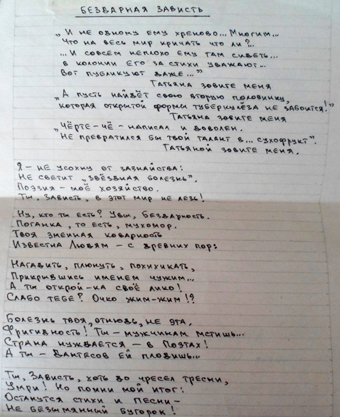 БЕЗДАРНАЯ ЗАВИСТЬ
„И не одному ему хреново... Многим...
Что на весь мир кричать что ли?..
...И совсем неплохо ему там сидеть...
в колонии его за стихи уважают...
Вот публикуют даже..."
Татьяна зовите меня
„А пусть найдёт свою вторую половинку,
которая открытой формы туберкулёза не забоится!"
Татьяна зовите меня
„Чёрте-чё - написал и доволен.
Не превратился бы твой талант в... сухофрукт".
Татьяной зовите меня.
Я - не усохну от зазнайства:
Не светит „звёздная болезнь".
Поэзия - моё хозяйство.
Ты, Зависть, в этот мир не лезь!
Ну, кто ты есть? Увы, бездарность.
Поганка, то есть, мухомор.
Твоя змеиная коварность
Известна Людям - с древних пор:
Нагадить, плюнуть, похихикать,
Прикрывшись именем чужим...
А ты открой-ка своё лико!
Слабо тебе? Очко жим-жим!?
Болезнь твоя, отнюдь, не эта,
Фригидность! Ты - мужчинам мстишь...
Страна нуждается - в Поэтах!
А ты - Дантесов ей плодишь...
Ты, Зависть, хоть до чресел тресни,
Умри! Но помни мой итог:
Останутся стихи и Песни -
Не безымянный бугорок!